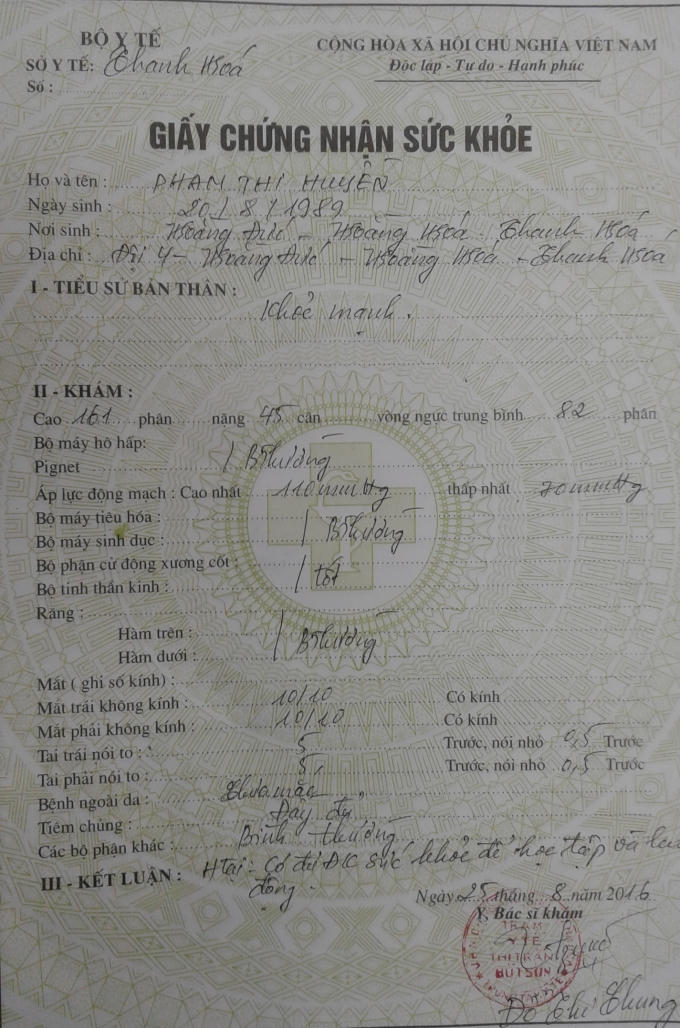 BỘ Y TẾ
SỞ Y TẾ: Thanh Hoá
Số :
CỘNG HÒA XÃ HỘI CHỦ NGHĨA VIỆT NAM
Độc lập - Tự do - Hạnh phúc
GIẤY CHỨNG NHẬN SỨC KHỎE
Họ và tên : PHẠM THỊ HUYỀN
Ngày sinh : 20 / 8 / 1989
Nơi sinh : Hoằng Đức - Hoằng Hoá - Thanh Hoá
Địa chỉ : Đội 4 - Hoằng Đức - Hoằng Hoá - Thanh Hoá
I - TIỂU SỬ BẢN THÂN :
Khỏe mạnh .
II - KHÁM :
Cao 161 phân nặng 45 cân vòng ngực trung bình 82 phân
Bộ máy hô hấp:
Pignet / Bthường
Áp lực động mạch : Cao nhất 110mmHg thấp nhất 70mmHg
Bộ máy tiêu hóa :
Bộ máy sinh dục : / Bthường
Bộ phận cử động xương cốt :
Bộ tinh thần kinh : / tốt
Răng :
Hàm trên :
Hàm dưới : / Bthường
Mắt ( ghi số kính) :
Mắt trái không kính : 10/10 Có kính
Mắt phải không kính : 10/10 Có kính
Tai trái nói to : 5 Trước, nói nhỏ 0,5 Trước
Tai phải nói to : 5 Trước, nói nhỏ 0,5 Trước
Bệnh ngoài da : Chưa mắc
Tiêm chủng : Đầy đủ
Các bộ phận khác : Bình thường
III - KẾT LUẬN : Htại: Có đủ ĐK sức khỏe để học tập và lao
động .
Ngày 25 tháng 8 năm 2016
Y, Bác sĩ khám
TRẠM
Y TẾ
THỊ TRẤN
BÚT SƠN
Đỗ Thị Chung